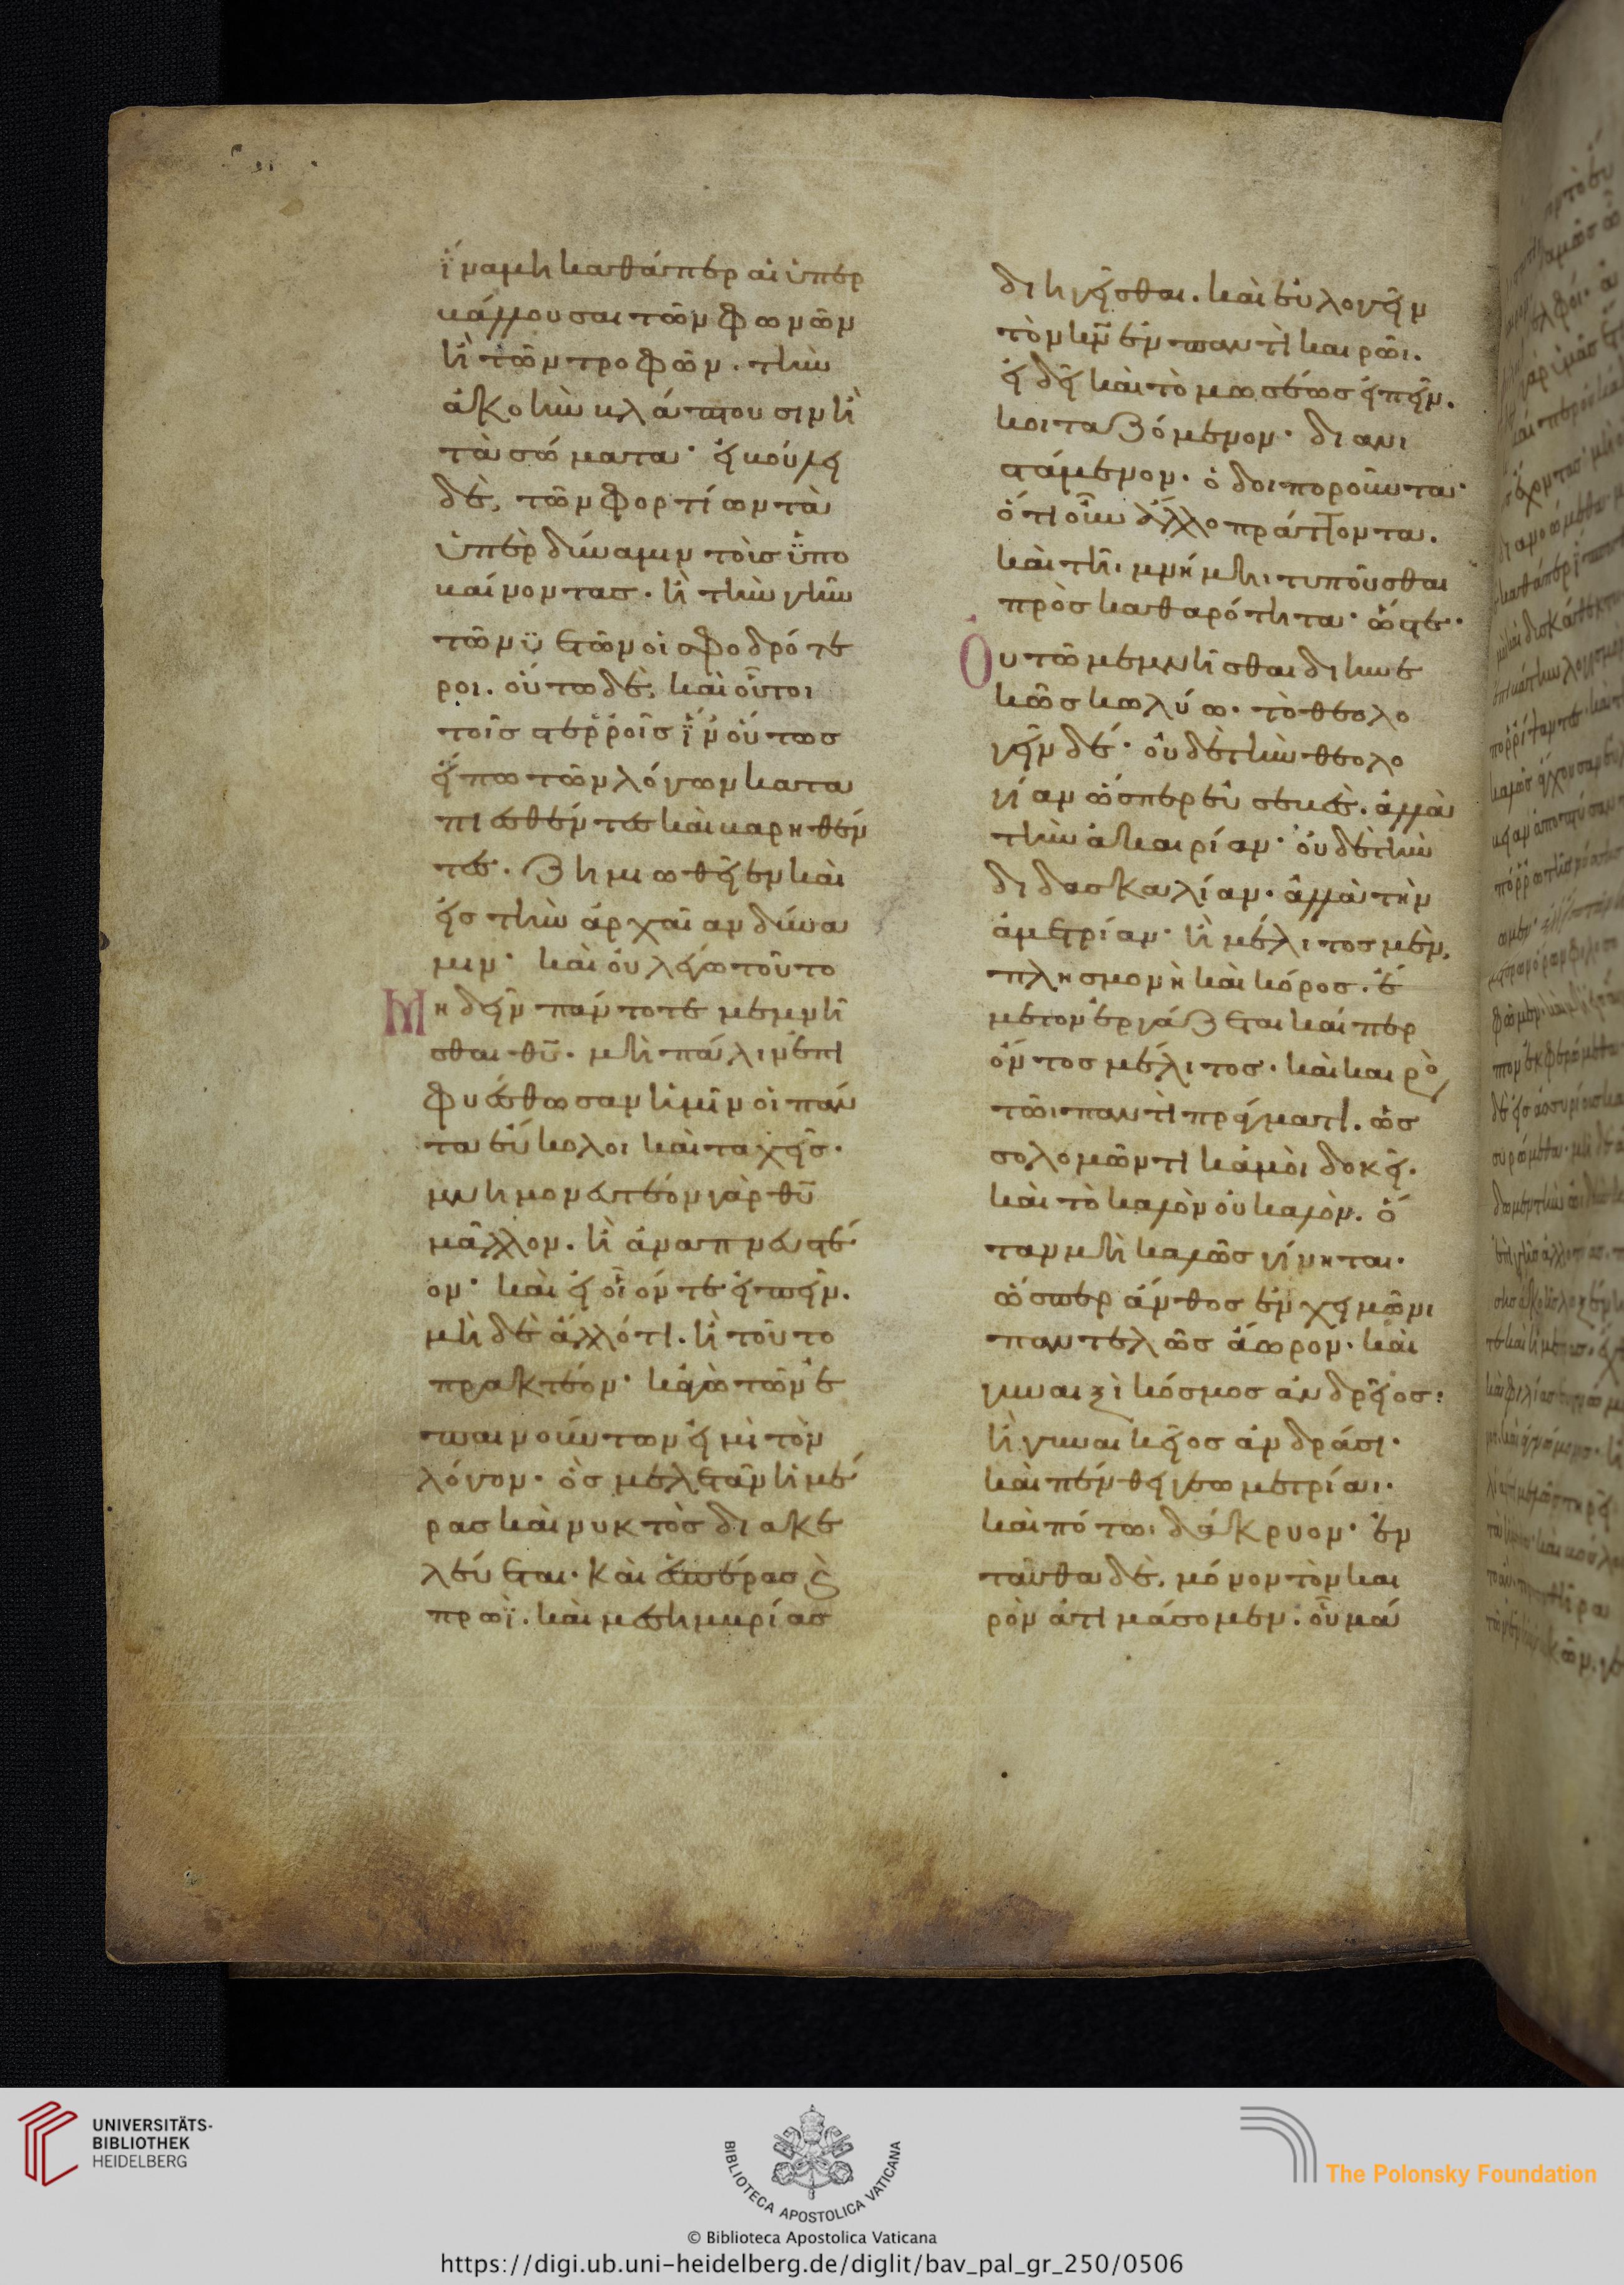 ἵνα μὴ καθάπερ αἱ ὑπερ
βάλλουσαι τῶν φωνῶν
ἢ τῶν τροφῶν. τὴν
ἀκοὴν βλάπτουσιν ἢ
τὰ σώματα· εἰ βούλει
δὲ, τῶν φορτίων τὰ
ὑπὲρ δύναμιν τοὺς ὑπο
βαίνοντας. ἢ τὴν γῆν
τῶν ὑετῶν οἱ σφοδρότε
ροι. οὕτω δὲ, καὶ οὗτοι
τοῖς στερροῖς ἵν' οὕτως
εἴπω τῶν λόγων κατα
πιεσθέντες καὶ βαρηθέν
τες. ζημιωθεῖεν καὶ
εἰς τὴν ἀρχαίαν δύνα
μιν· καὶ οὐ λέγω τοῦτο
Μὴ δεῖν πάντοτε μεμνῆ
σθαι θῦ. μὴ πάλιν ἐπι
φυέσθωσαν ἡμῖν οἱ πάν
τα εὔκολοι καὶ ταχεῖς.
μνημονευτέον γὰρ θῦ
μᾶλλον. ἢ ἀναπνευστέ
ον· καὶ εἰ οἷόν τε εἰπεῖν.
μὴ δὲ ἄλλό τι. ἢ τοῦτο
πρακτέον· κἀγὼ τῶν ἐ
παινούντων εἰμὶ τὸν
λόγον· ὃς μελετᾶν ἡμέ
ρας καὶ νυκτὸς διακε
λεύεται. καὶ ἑσπέρας ϛ
πρωῒ. καὶ μεσημβρίας
διηγεῖσθαι. καὶ εὐλογεῖν
τὸν κν̄ ἐν παντὶ καιρῶι.
εἰ δεῖ καὶ τὸ μωσέως εἰπεῖν.
κοιταζόμενον· διανι
στάμενον. ὁδοιποροῦντα·
ὅτι οὖν ἄλλο πράττοντα.
καὶ τῆι μνήμηι τυποῦσθαι
πρὸς καθαρότητα· ὥστε·
Οὐ τὸ μεμνῆσθαι διηνε
κῶς κωλύω. τὸ θεολο
γεῖν δέ· οὐδὲ τὴν θεολο
γίαν ὥσπερ εὐσεβὲς. ἀλλὰ
τὴν ἀκαιρίαν· οὐδὲ τὴν
διδασκαλίαν. ἀλλὰ τὴν
ἀμετρίαν· ἢ μέλιτος μὲν,
πλησμονὴ καὶ κόρος. ἔ
μετον ἐργάζεται καίπερ
ὄντος μέλιτος. καὶ καιρὸς
τῶι παντὶ πράγματι. ὡς
σολομῶντι κἀμοὶ δοκεῖ.
καὶ τὸ καλὸν οὐ καλὸν. ὅ
ταν μὴ καλῶς γίνηται.
ὥσπερ ἄνθος ἐν χειμῶνι
παντελῶς ἄωρον. καὶ
γυναιξὶ κόσμος ἀνδρεῖος:
ἢ γυναικεῖος ἀνδράσι.
καὶ πένθει γεωμετρίαι.
καὶ πότωι δάκρυον· ἐν
ταῦθα δὲ, μόνον τὸν και
ρὸν ἀτιμάσομεν. οὗ μά
UNIVERSITÄTS-
BIBLIOTHEK
HEIDELBERG
BIBLIOTECA APOSTOLICA VATICANA
The Polonsky Foundation
© Biblioteca Apostolica Vaticana
https://digi.ub.uni-heidelberg.de/diglit/bav_pal_gr_250/0506